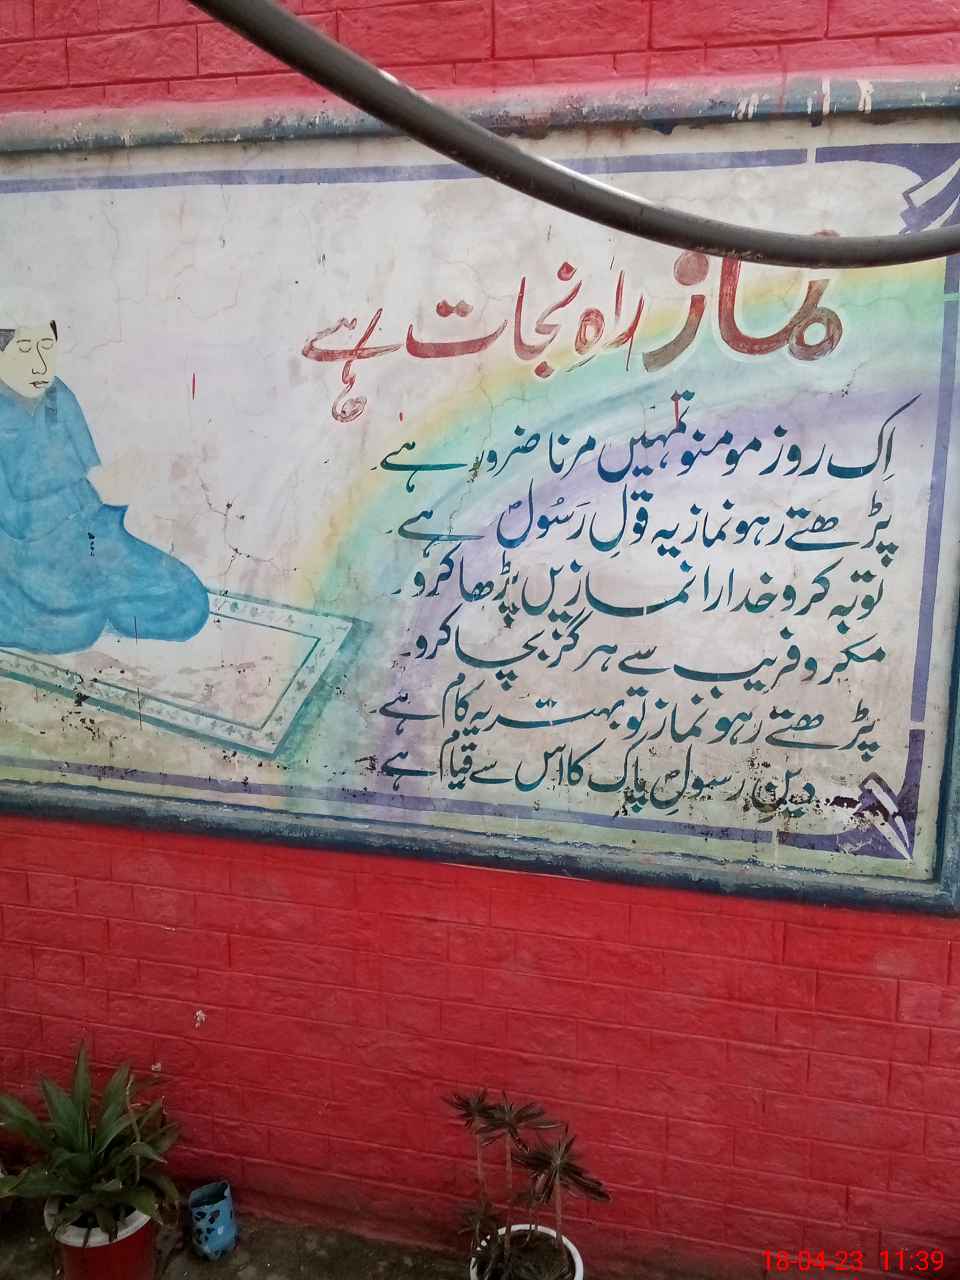 نماز راہِ نجات ہے
اِک روز مومنو تمہیں مرنا ضرور ہے۔
پڑھتے رہو نماز یہ قولِ رَسُولؐ ہے۔
توبہ کرو خدارا نمازیں پڑھا کرو۔
مکر و فریب سے ہرگز بچا کرو۔
پڑھتے رہو نماز تو بہتر یہ کام ہے۔
دینِ رسولِؐ پاک کا اس سے قیام ہے
18-04-23 11:39